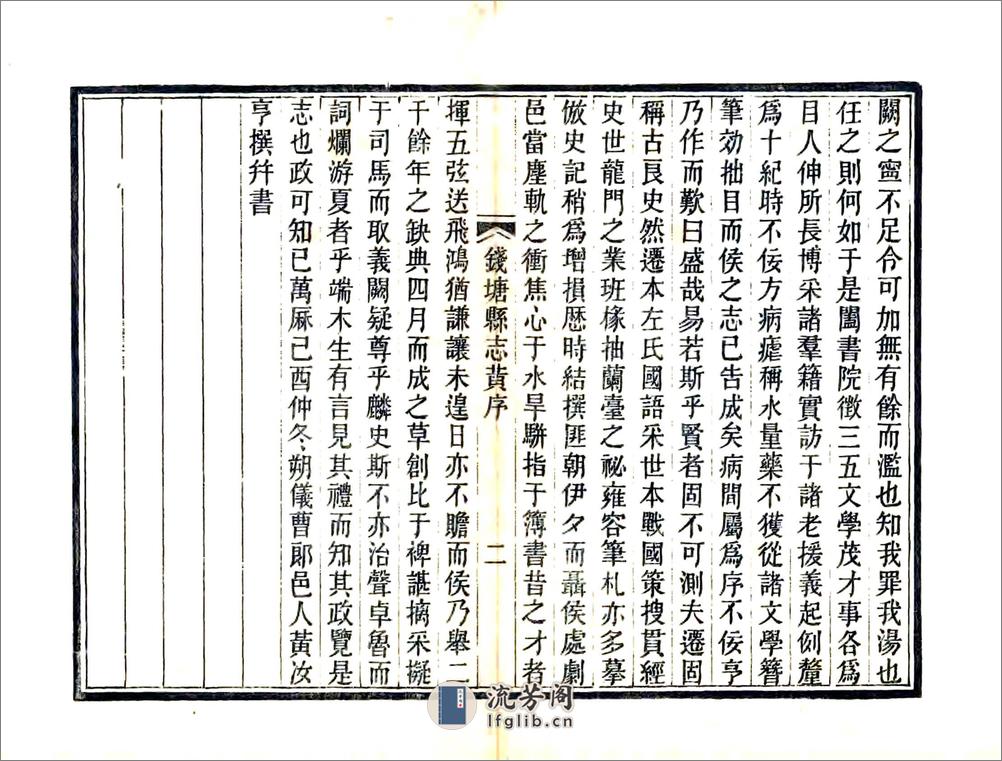 闕之寧不足令可加無有餘而濫也知我罪我湯也
任之則何如于是闔書院徵三五文學茂才事各爲
目人伸所長博采諸羣籍實訪于諸老援義起例釐
爲十紀時不佞方病瘧稱水量藥不獲從諸文學簪
筆効拙目而侯之志已告成矣病間屬爲序不佞亨
乃作而歎曰盛哉易若斯乎賢者固不可測夫遷固
稱古良史然遷本左氏國語采世本戰國策搜貫經
史世龍門之業班椽抽蘭臺之祕雍容筆札亦多摹
倣史記稍爲增損歷時結撰匪朝伊夕而聶侯處劇
邑當塵軌之衝焦心于水旱駢指于簿書昔之才者
錢塘縣志黃序 二
揮五弦送飛鴻猶謙讓未遑日亦不贍而侯乃舉二
千餘年之缺典四月而成之草創比于裨諶摛采擬
于司馬而取義闕疑尊乎麟史斯不亦治聲卓魯而
詞爛游夏者乎端木生有言見其禮而知其政覽是
志也政可知已萬厤己酉仲冬朔儀曹郎邑人黃汝
亨撰幷書
流芳阁
lfglib.cn